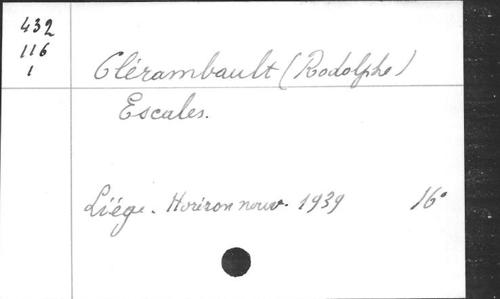 432
116
1
Clérambault (Rodolphe)
Escales.
Liége. Horizon nouv. 1939 16°